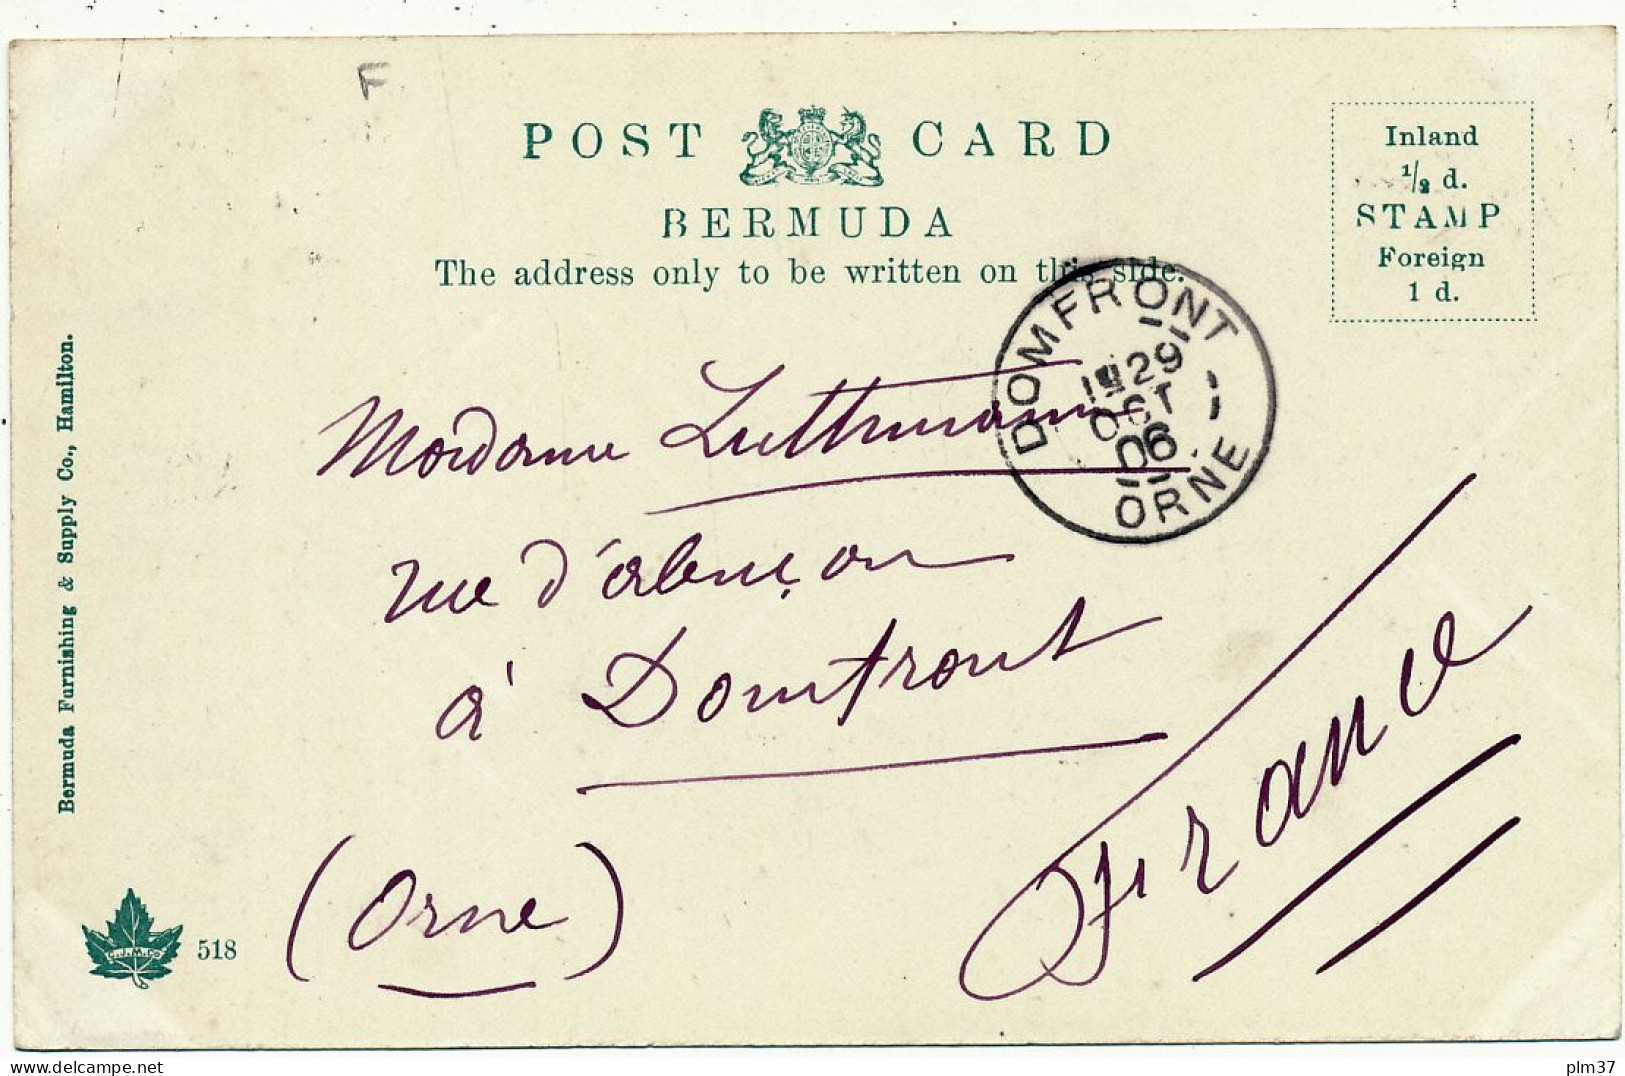 F
POST CARD
BERMUDA
The address only to be written on this side.
Inland
1/2 d.
STAMP
Foreign
1 d.
DOMFRONT
29
OCT
06
ORNE
Madame Luttmann
rue d'alençon
à Domfront
(Orne)
France
Bermuda Furnishing & Supply Co., Hamilton.
518
plm37